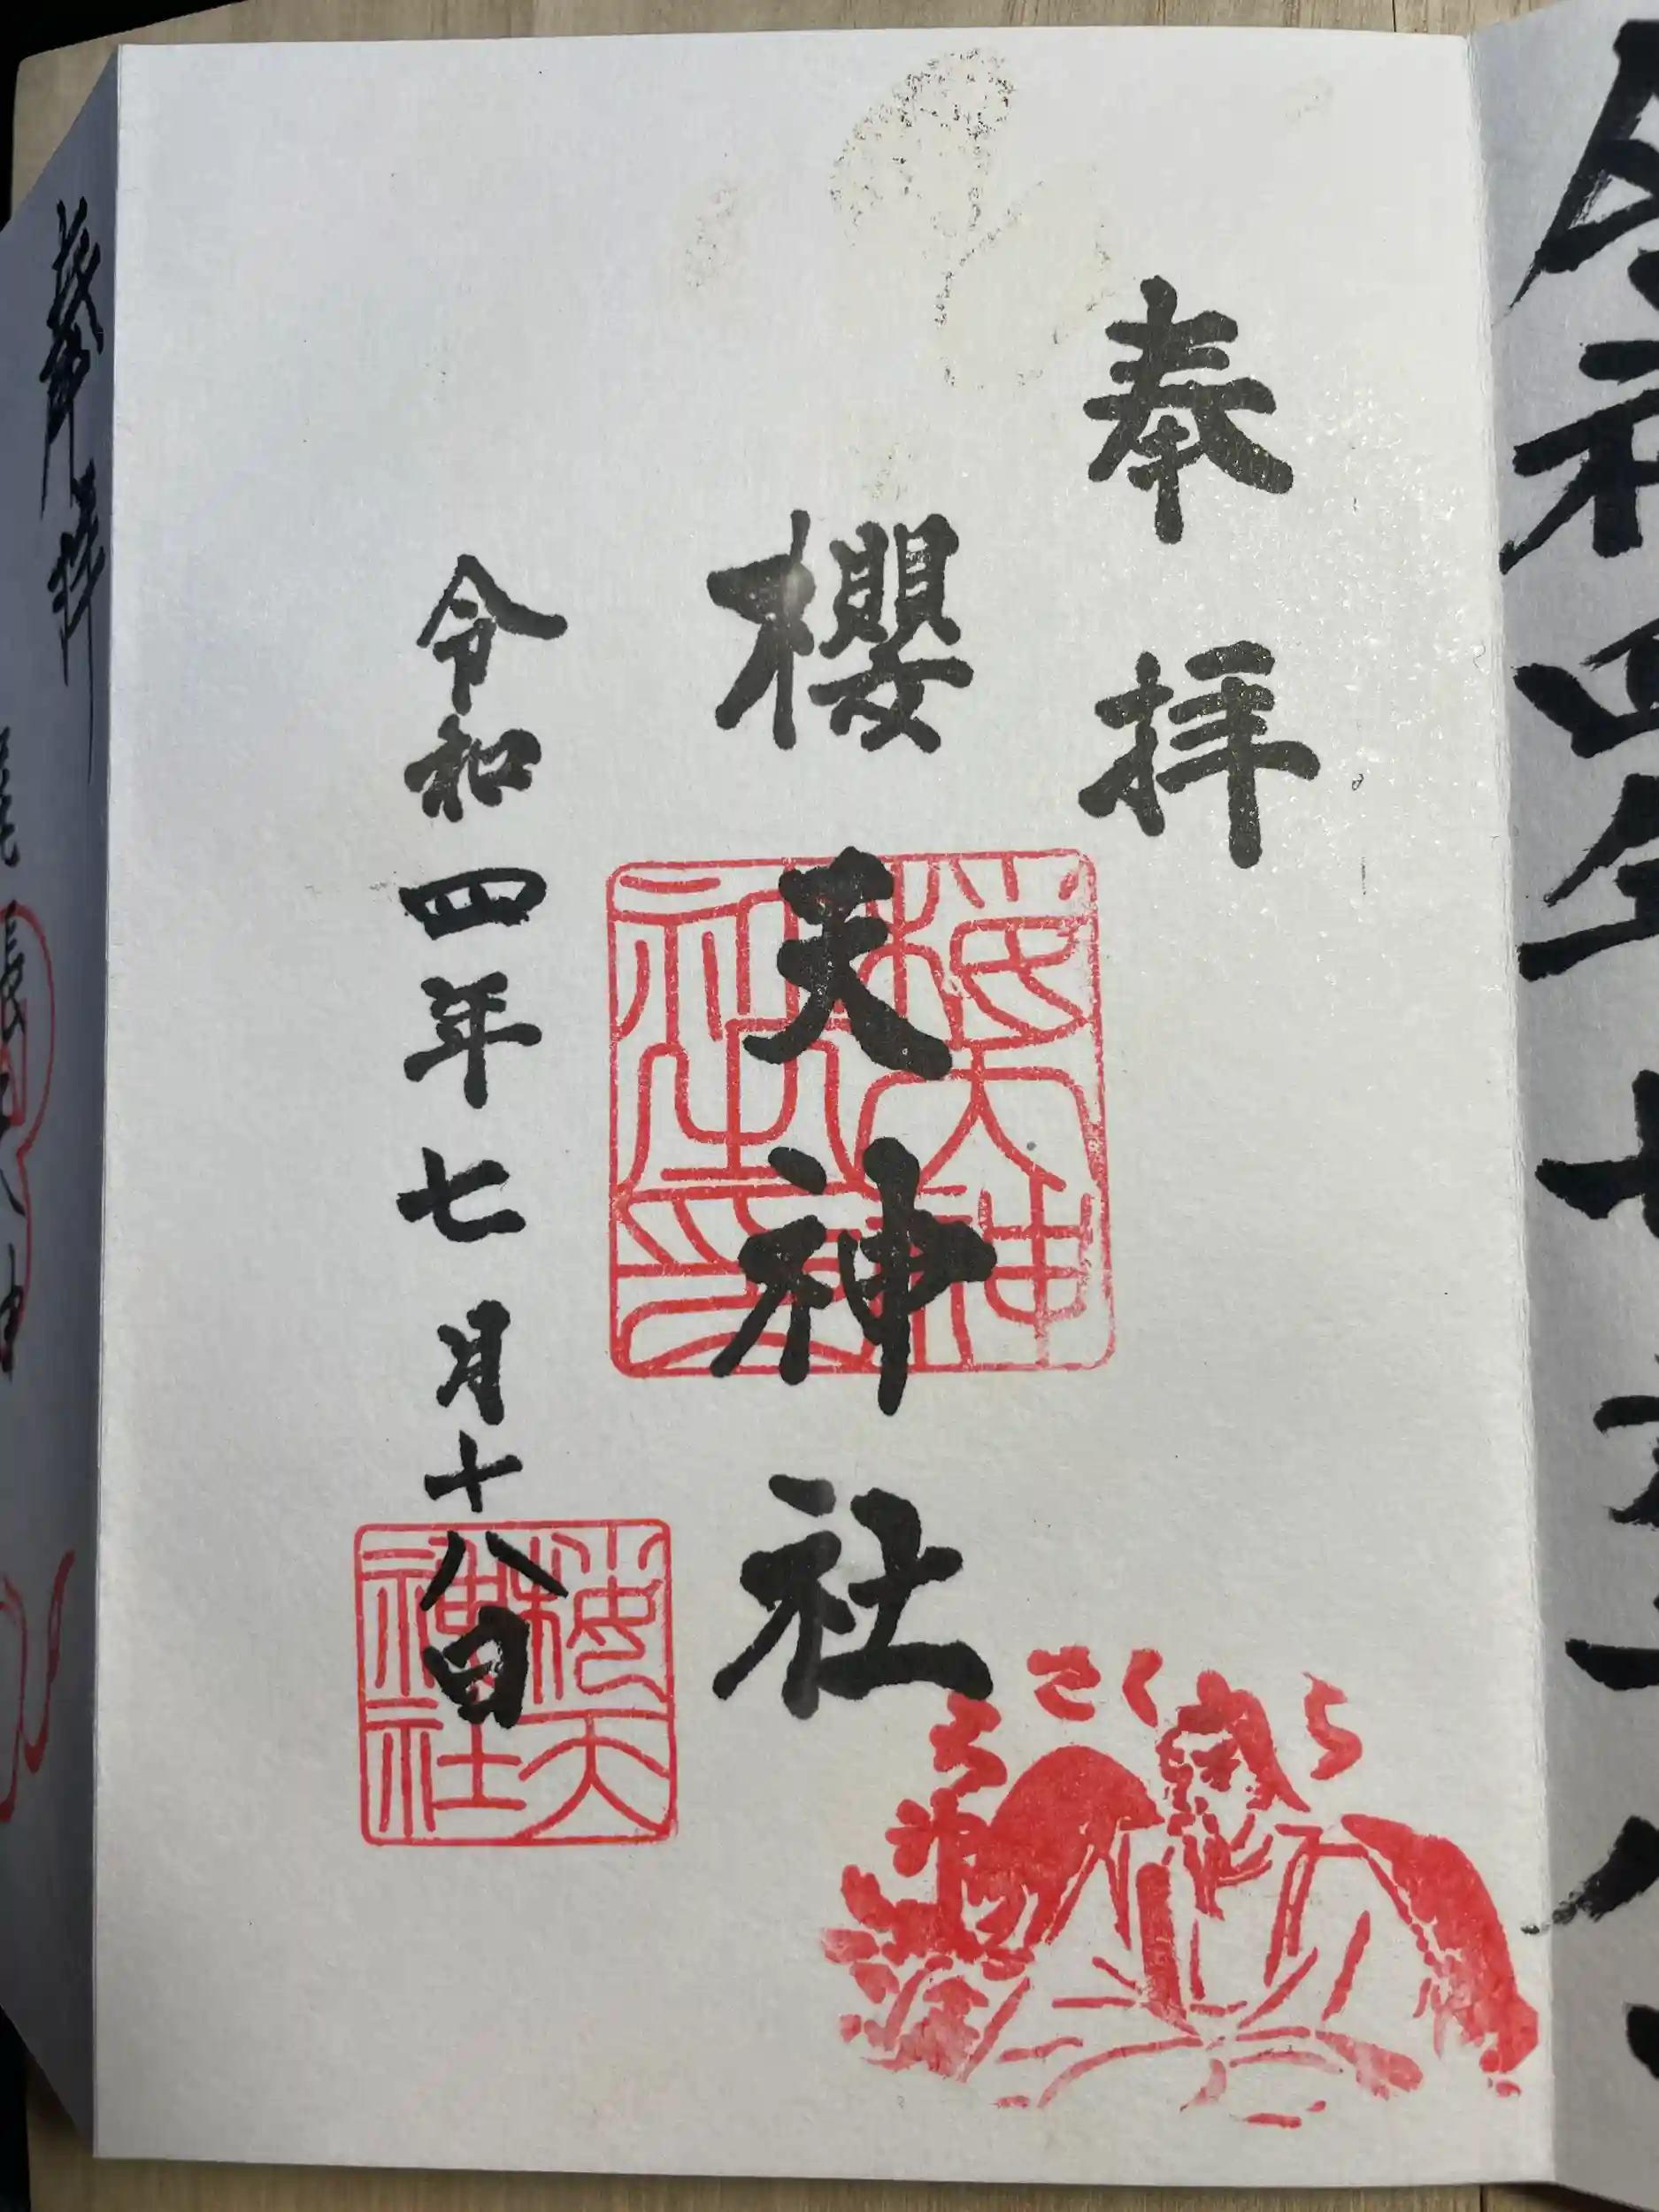 奉拝
櫻天神社
令和四年七月十八日
櫻天神社印
櫻天神社
さくら
令和四年七
奉拝